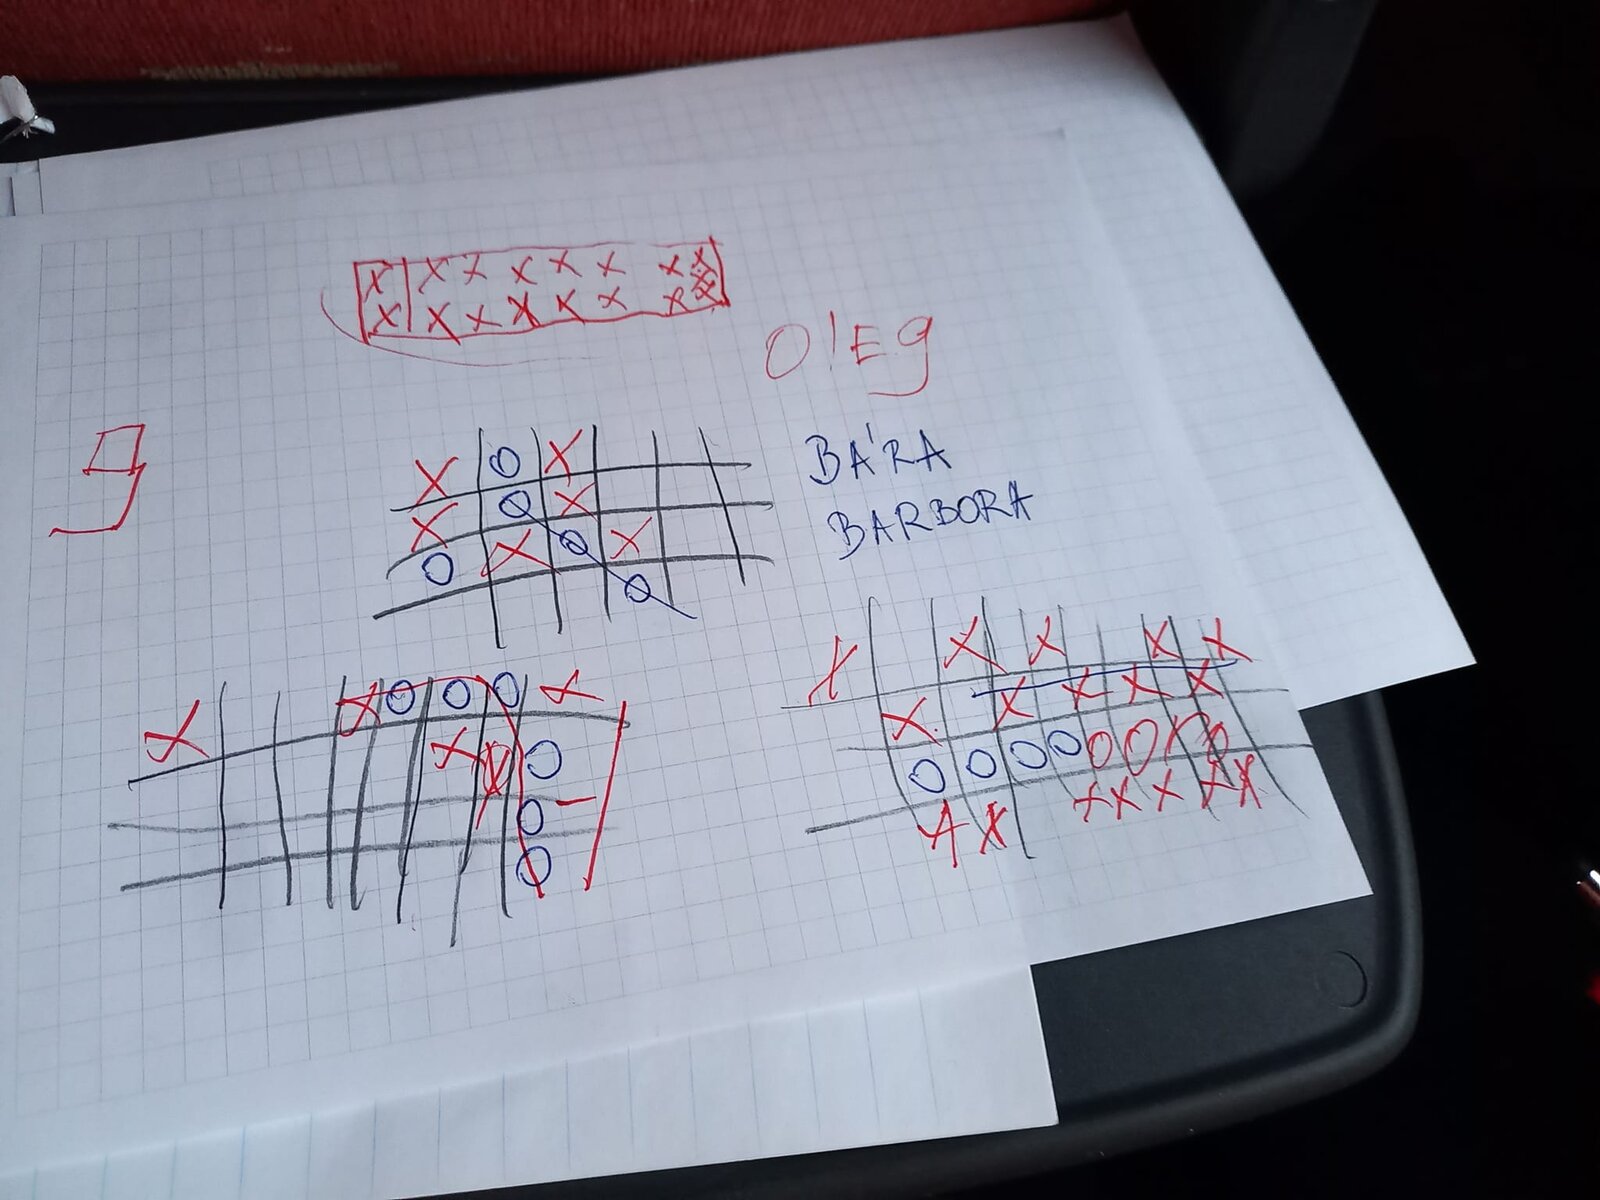 X X X X X X X X
X X X X X X X X
O!Eg
g
X O X
X O X
O X O X
O
BÁRA
BARBORA
X X X X X
X X X X X
O O O O O O O
X X X X X X X
X X O O O X
X X O
O
O